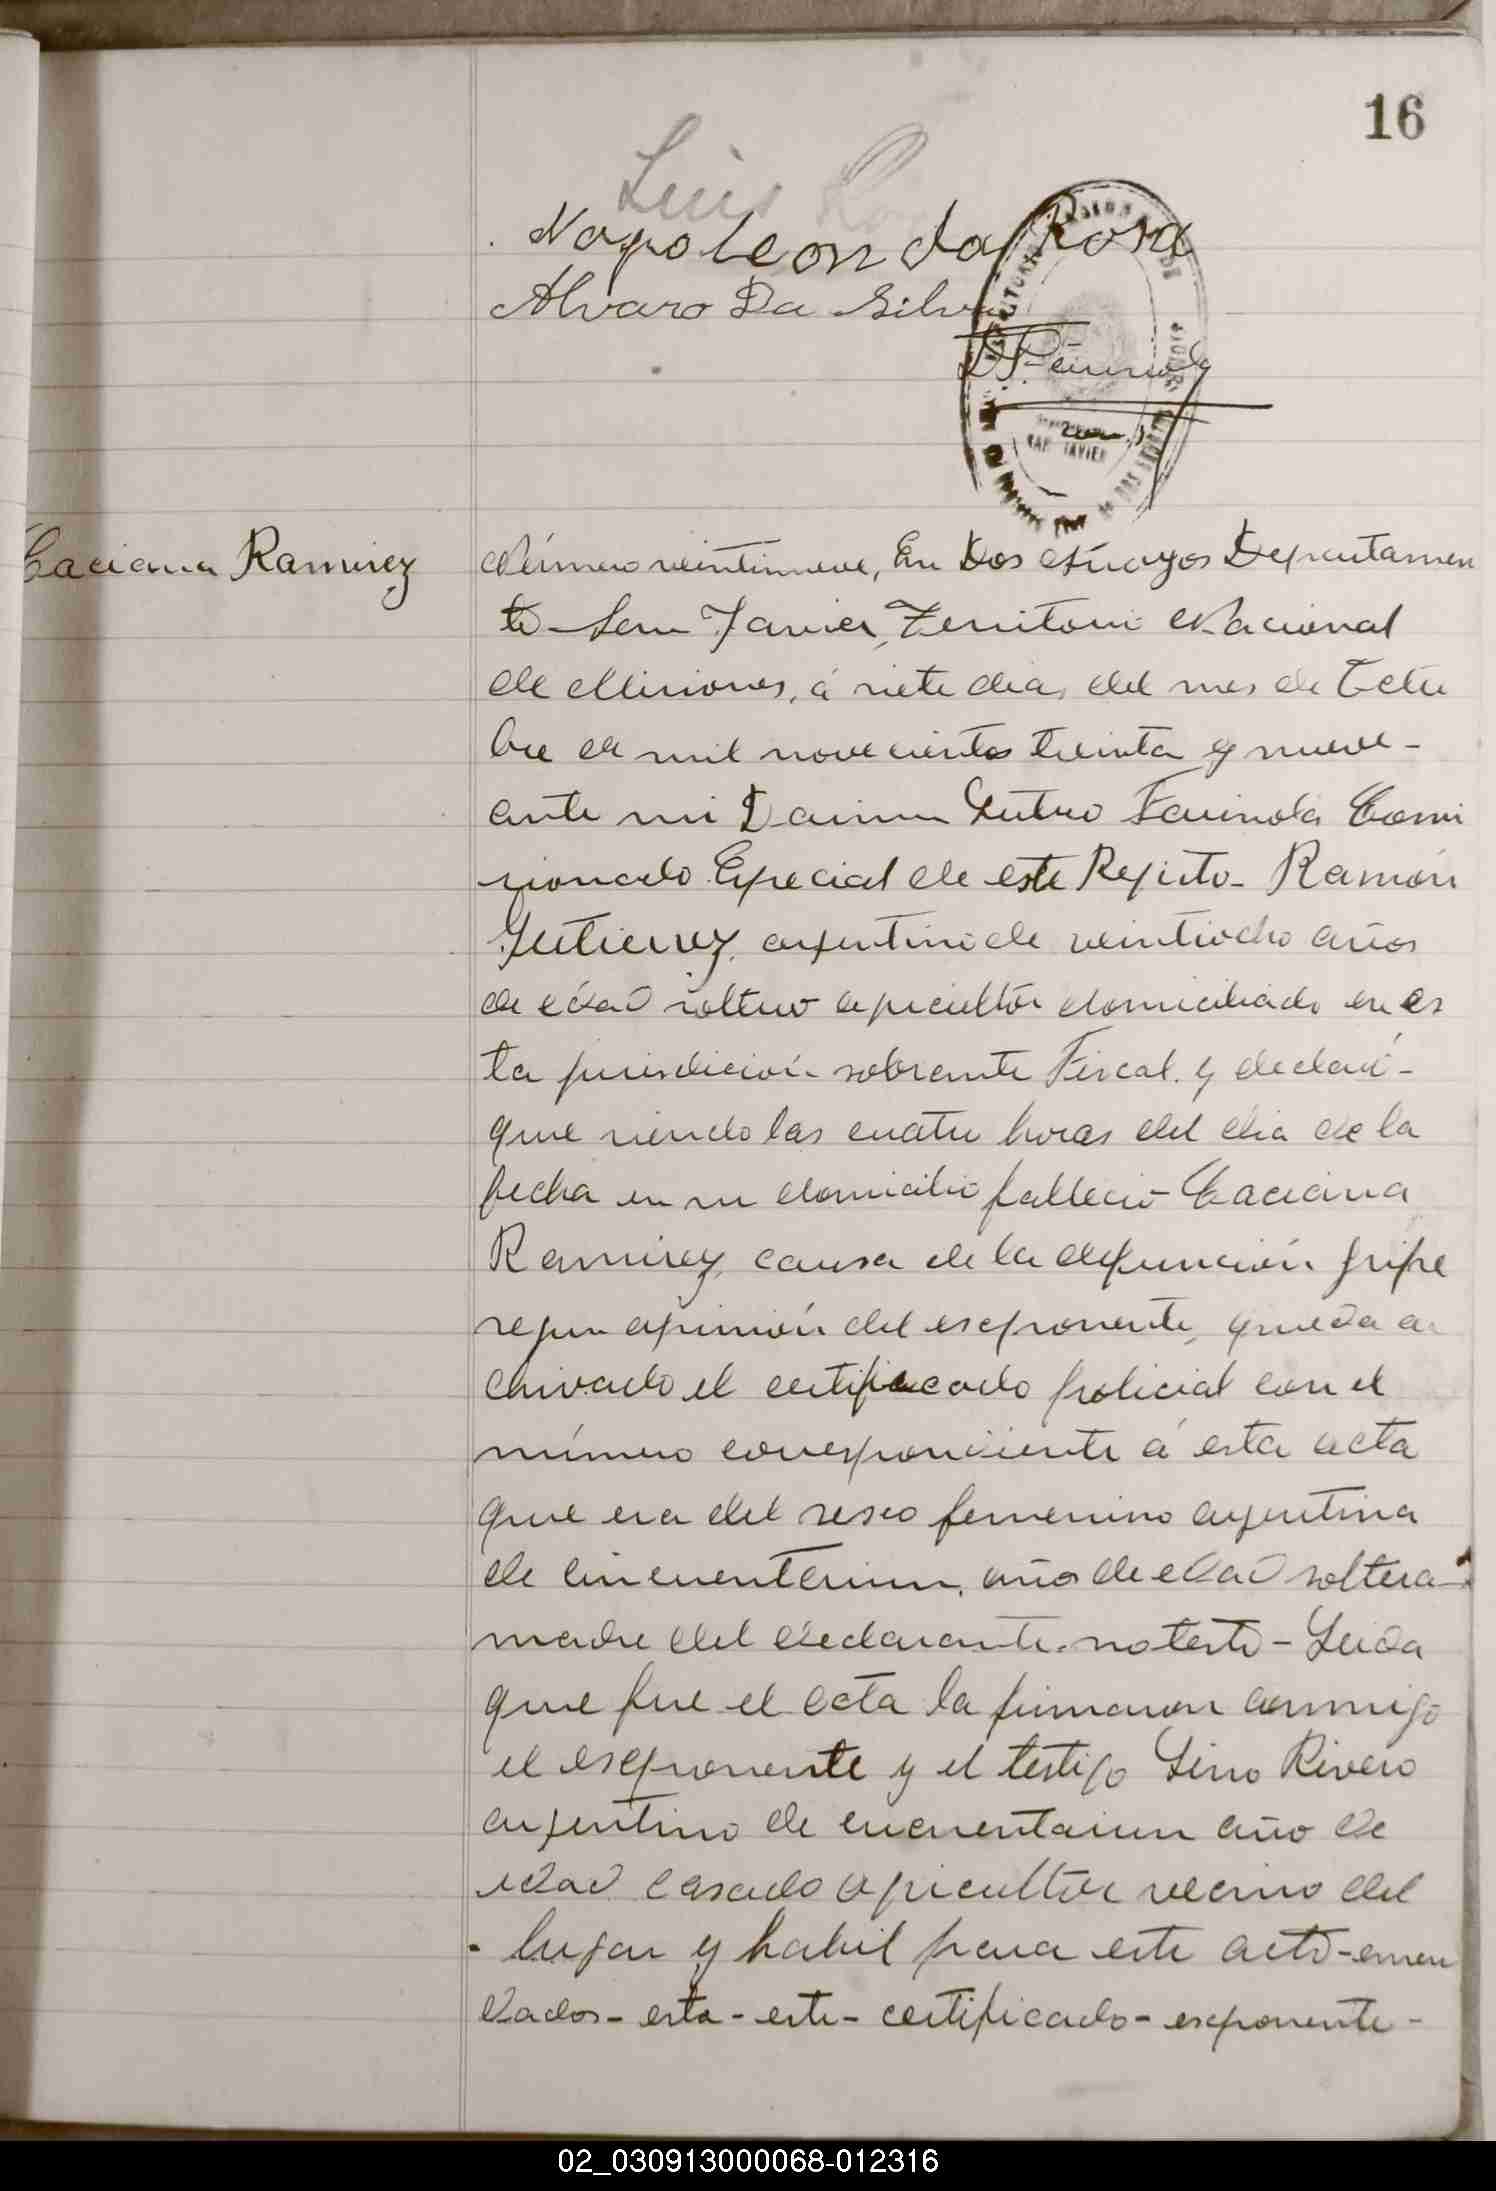 16
Luis
Napoleon da Rosa
Alvaro Da Silva
SAN JAVIER
Caciana Ramirez
Número veintinueve, En Dos Arroyos Departamen
to San Javier, Territorio Nacional
de Misiones, á siete dias del mes de Octu
bre de mil novecientos treinta y nueve-
ante mi Comi
sionado Especial de este Rejisto- Ramón
Gutierrez, arjentino de veintiocho años
de edad soltero agricultór domiciliado en es
ta jurisdición sobrante Fiscal. y declaró-
que siendo las cuatro horas del dia de la
fecha en su domicilio falleció Caciana
Ramirez, causa de la defunción gripe
segun opinión del esxponente, queda ar
chivado el certificado policial con el
número correspondiente á esta acta
que era del sexo femenino arjentina
de cincuentaiun, años de edad soltera-
madre del declarante. no testó- Leida
que fue el acta la firmaron conmigo
el esxponente y el testigo Lino Rivero
arjentino de cuarentaiun año de
edad casado agricultór vecino del
lugar y habil para este acto-enmen
dados- esta- este- certificado- esxponente-
02_030913000068-012316